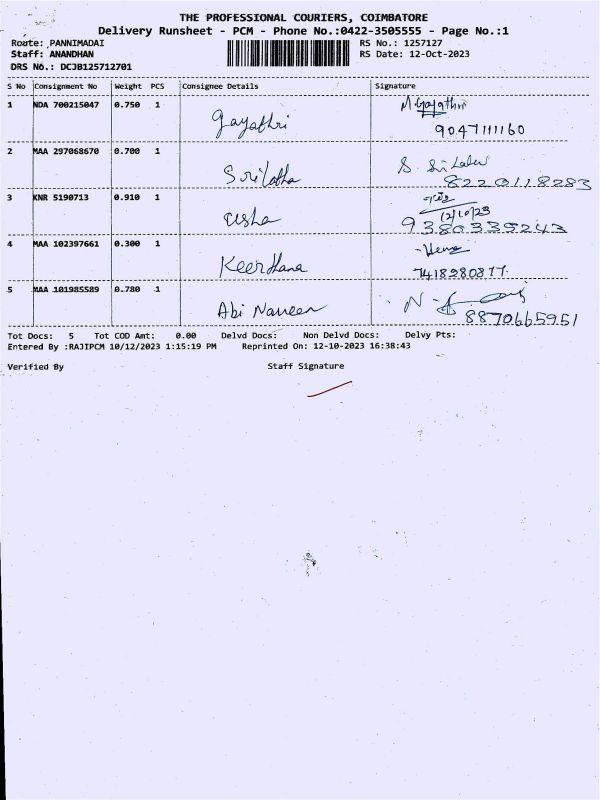 THE PROFESSIONAL COURIERS, COIMBATORE
Delivery Runsheet - PCM - Phone No.:0422-3505555 - Page No.:1
Route: PANNIMADAI RS No.: 1257127
Staff: ANANDHAN RS Date: 12-Oct-2023
DRS No.: DCJB125712701
S No Consignment No Weight PCS Consignee Details Signature
1 NDA 700215047 0.750 1 Gayathri M. Gayathri
9047111160
2 MAA 297068670 0.700 1 Srilatha S.
8220118283
3 KNR 5190713 0.910 1 usha
12/10/23
9380339243
4 MAA 102397661 0.300 1 Keerdhana
7418980877
5 MAA 101985589 0.780 1 Abi Naveen N.
8870665951
Tot Docs: 5 Tot COD Amt: 0.00 Delvd Docs: Non Delvd Docs: Delvy Pts:
Entered By :RAJIPCM 10/12/2023 1:15:19 PM Reprinted On: 12-10-2023 16:38:43
Verified By Staff Signature